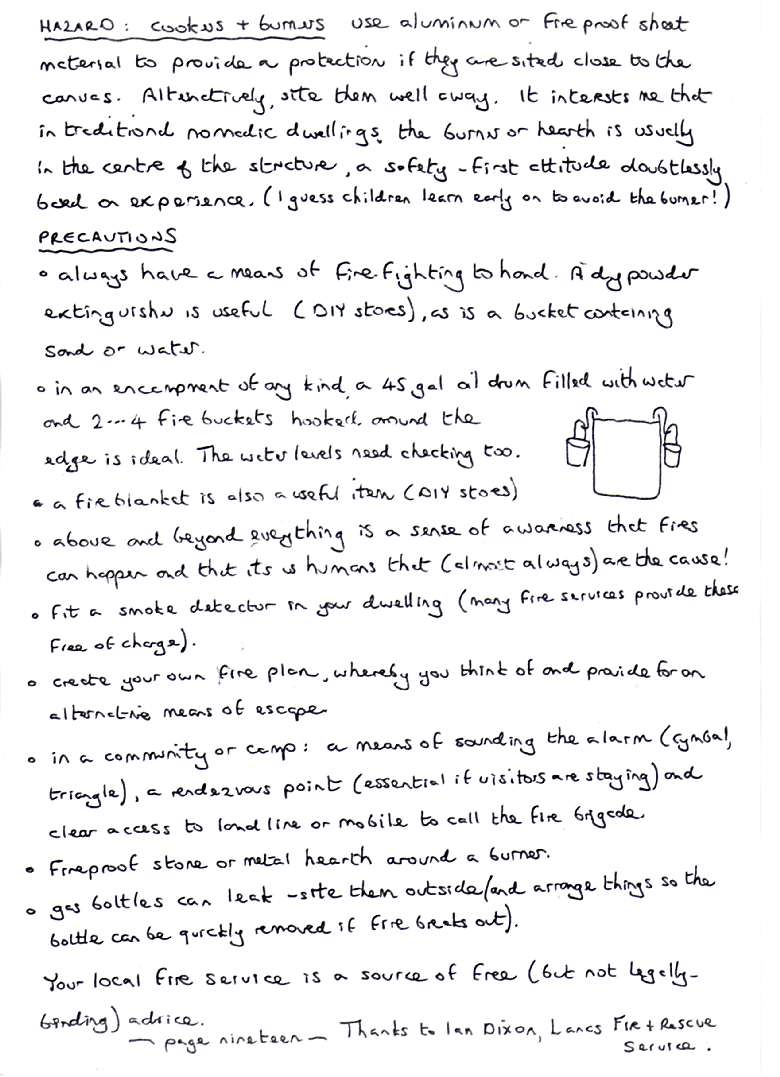 HAZARD: cookers + burners use aluminum or fire proof sheet
material to provide a protection if they are sited close to the
canvas. Alternatively, site them well away. It interests me that
in traditional nomadic dwellings, the burner or hearth is usually
in the centre of the structure, a safety-first attitude doubtlessly
based on experience. (I guess children learn early on to avoid the burner!)
PRECAUTIONS
• always have a means of fire-fighting to hand. A dry powder
extinguisher is useful (DIY stores), as is a bucket containing
sand or water.
• in an encampment of any kind, a 45 gal oil drum filled with water
and 2---4 fire buckets hooked around the
edge is ideal. The water levels need checking too.
• a fire blanket is also a useful item (DIY stores)
• above and beyond everything is a sense of awareness that fires
can happen and that its us humans that (almost always) are the cause!
• fit a smoke detector in your dwelling (many fire services provide these
free of charge).
• create your own fire plan, whereby you think of and provide for an
alternative means of escape
• in a community or camp: a means of sounding the alarm (cymbal,
triangle), a rendezvous point (essential if visitors are staying) and
clear access to land line or mobile to call the fire brigade.
• Fireproof stone or metal hearth around a burner.
• gas bottles can leak - site them outside (and arrange things so the
bottle can be quickly removed if fire breaks out).
Your local fire service is a source of free (but not legally-
binding) advice.
— page nineteen — Thanks to Ian Dixon, Lancs Fire + Rescue
Service.